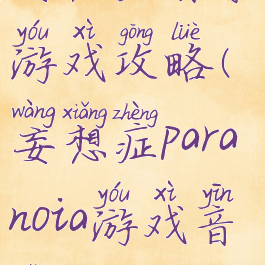 yóu xì gōng lüè
游戏攻略(
wàng xiǎng zhèng
妄想症para
yóu xì yīn
noia游戏音